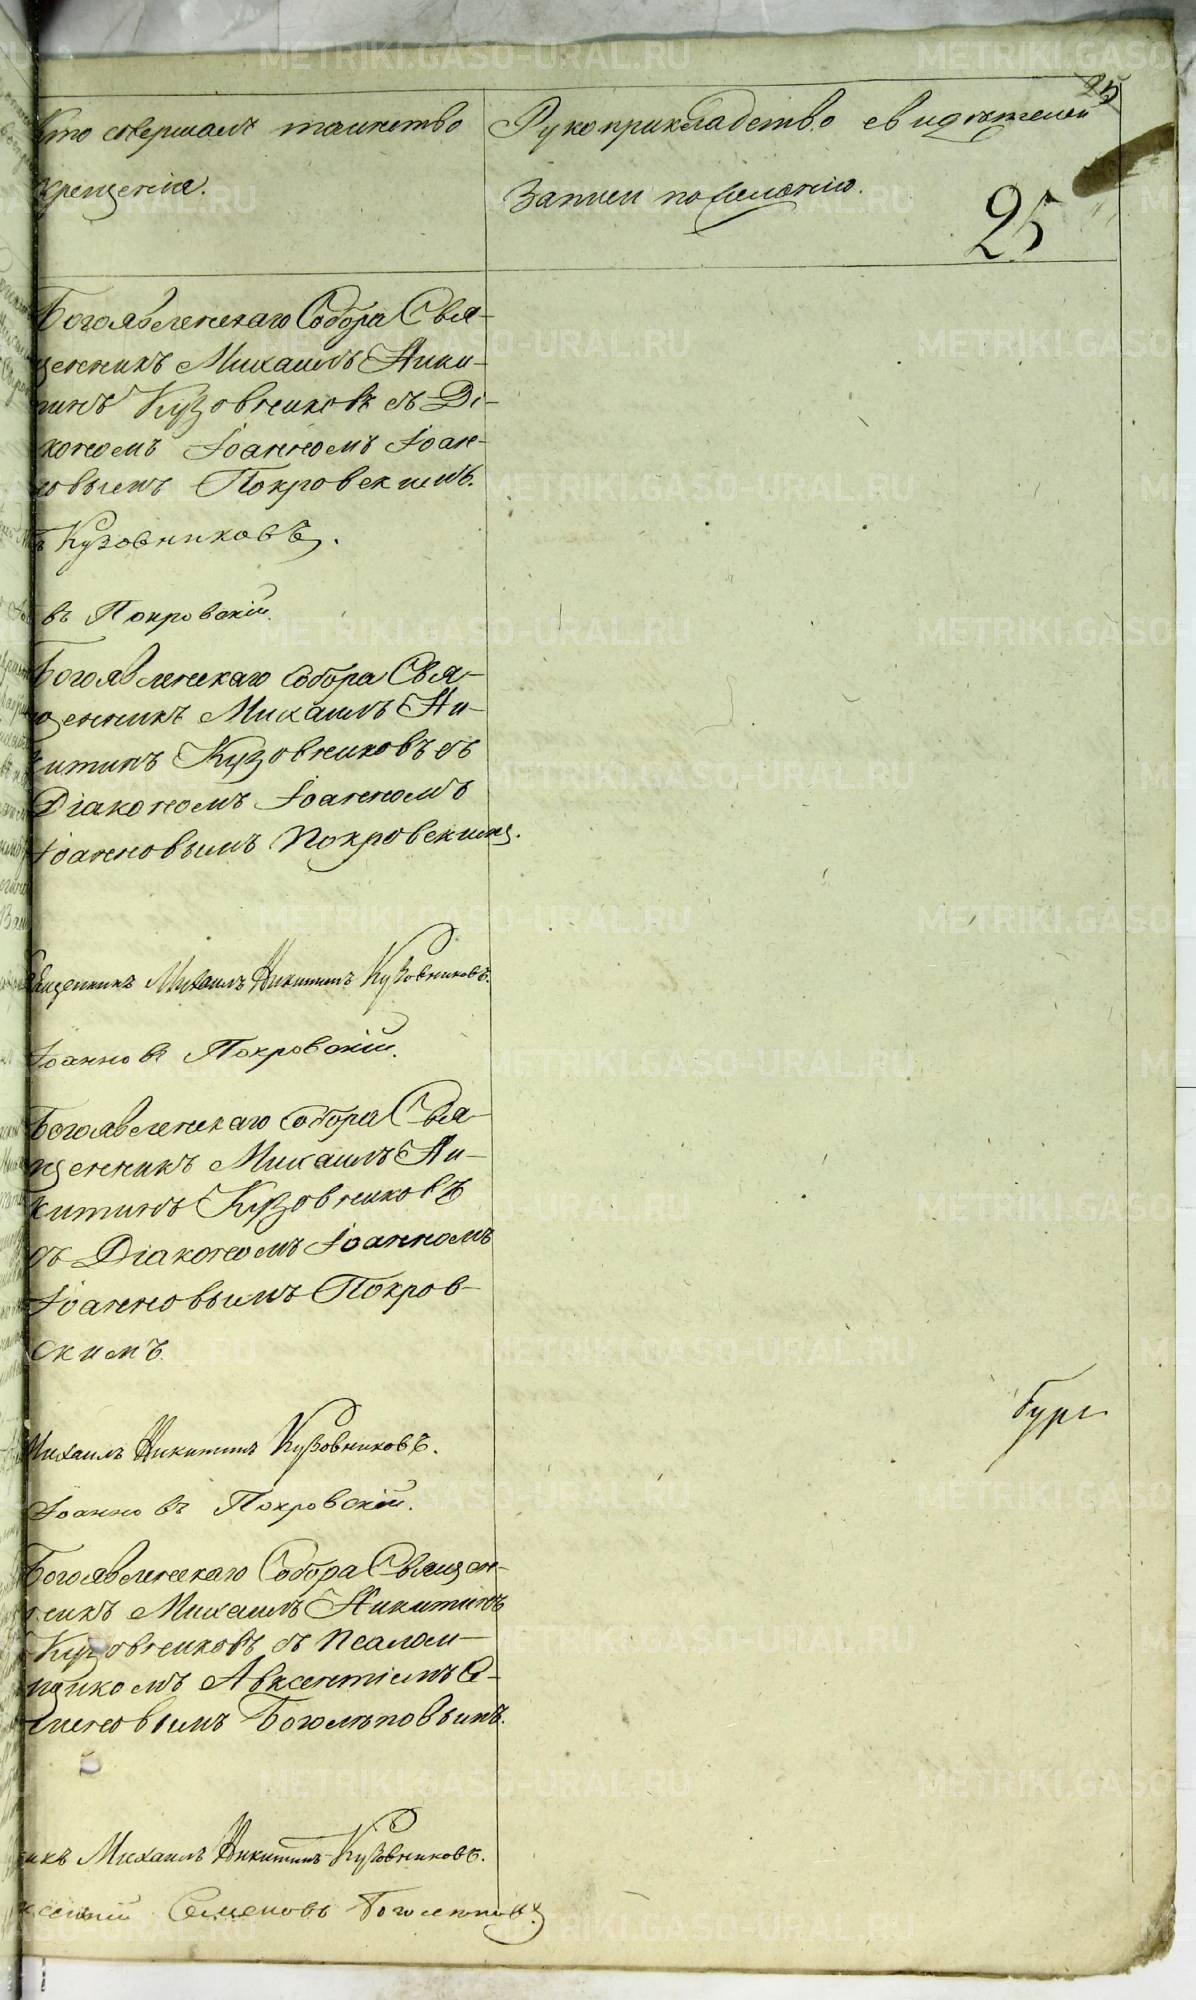 Кто совершалъ таинство
крещенія.
Рукоприкладство свидѣтелей
записи по желанію.
25
25
Богоявленскаго Собора Свя-
щенникъ Михаилъ Ники-
тинъ Кузовниковъ съ Ді-
кономъ Іоанномъ Іоан-
новымъ Покровскимъ.
Кузовниковъ.
въ Покровскій.
Богоявленскаго Собора Свя-
щенникъ Михаилъ Ни-
китинъ Кузовниковъ съ
Діакономъ Іоанномъ
Іоанновымъ Покровскимъ.
Священникъ Михаилъ Никитинъ Кузовниковъ.
Іоанновъ Покровскій.
Богоявленскаго Собора Свя-
щенникъ Михаилъ Ни-
китинъ Кузовниковъ
съ Діакономъ Іоанномъ
Іоанновымъ Покров-
скимъ.
Михаилъ Никитинъ Кузовниковъ.
Іоанновъ Покровскій.
Богоявленскаго Собора Священ-
никъ Михаилъ Никитинъ
Кузовниковъ съ Псалом-
щикомъ Авксентіемъ Се-
меновымъ Боголѣповымъ.
икъ Михаилъ Никитинъ Кузовниковъ.
ксентій Семеновъ Боголѣповъ.
METRIKI.GASO-URAL.RU